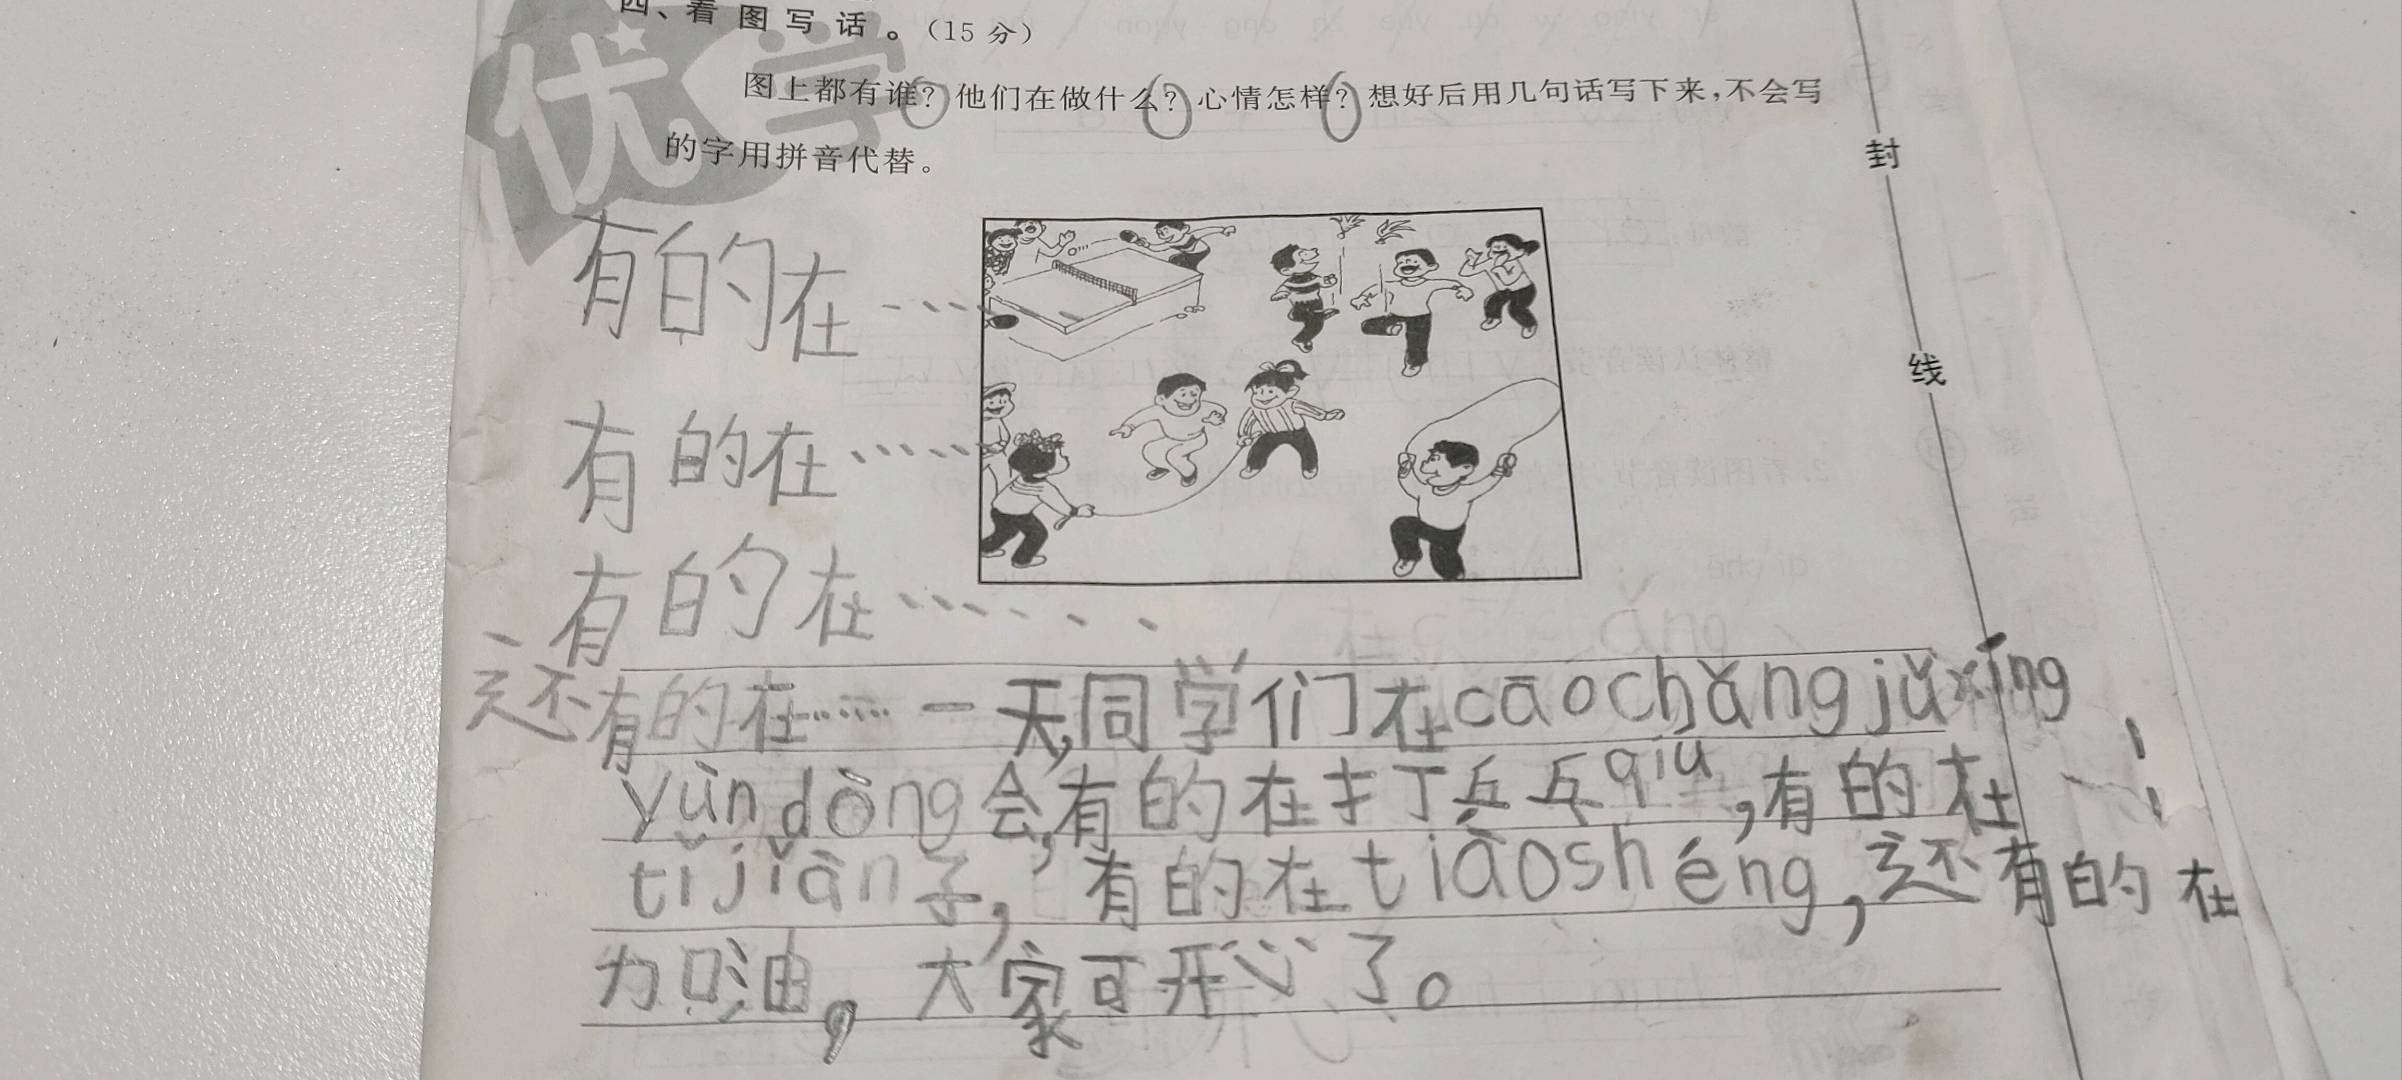 四、看图写话。(15分)
优学
图上都有谁?他们在做什么?心情怎样?想好后用几句话写下来,不会写
的字用拼音代替。
封
线
有的在……
有的在……
有的在……
还有的在……一天,同学们在cāochǎngjǔxīng
yùndòng会,有的在打乒乓qiu,有的在
tǐjiàn子,有的在tiàoshéng,还有的在
加油,大家可开心了。